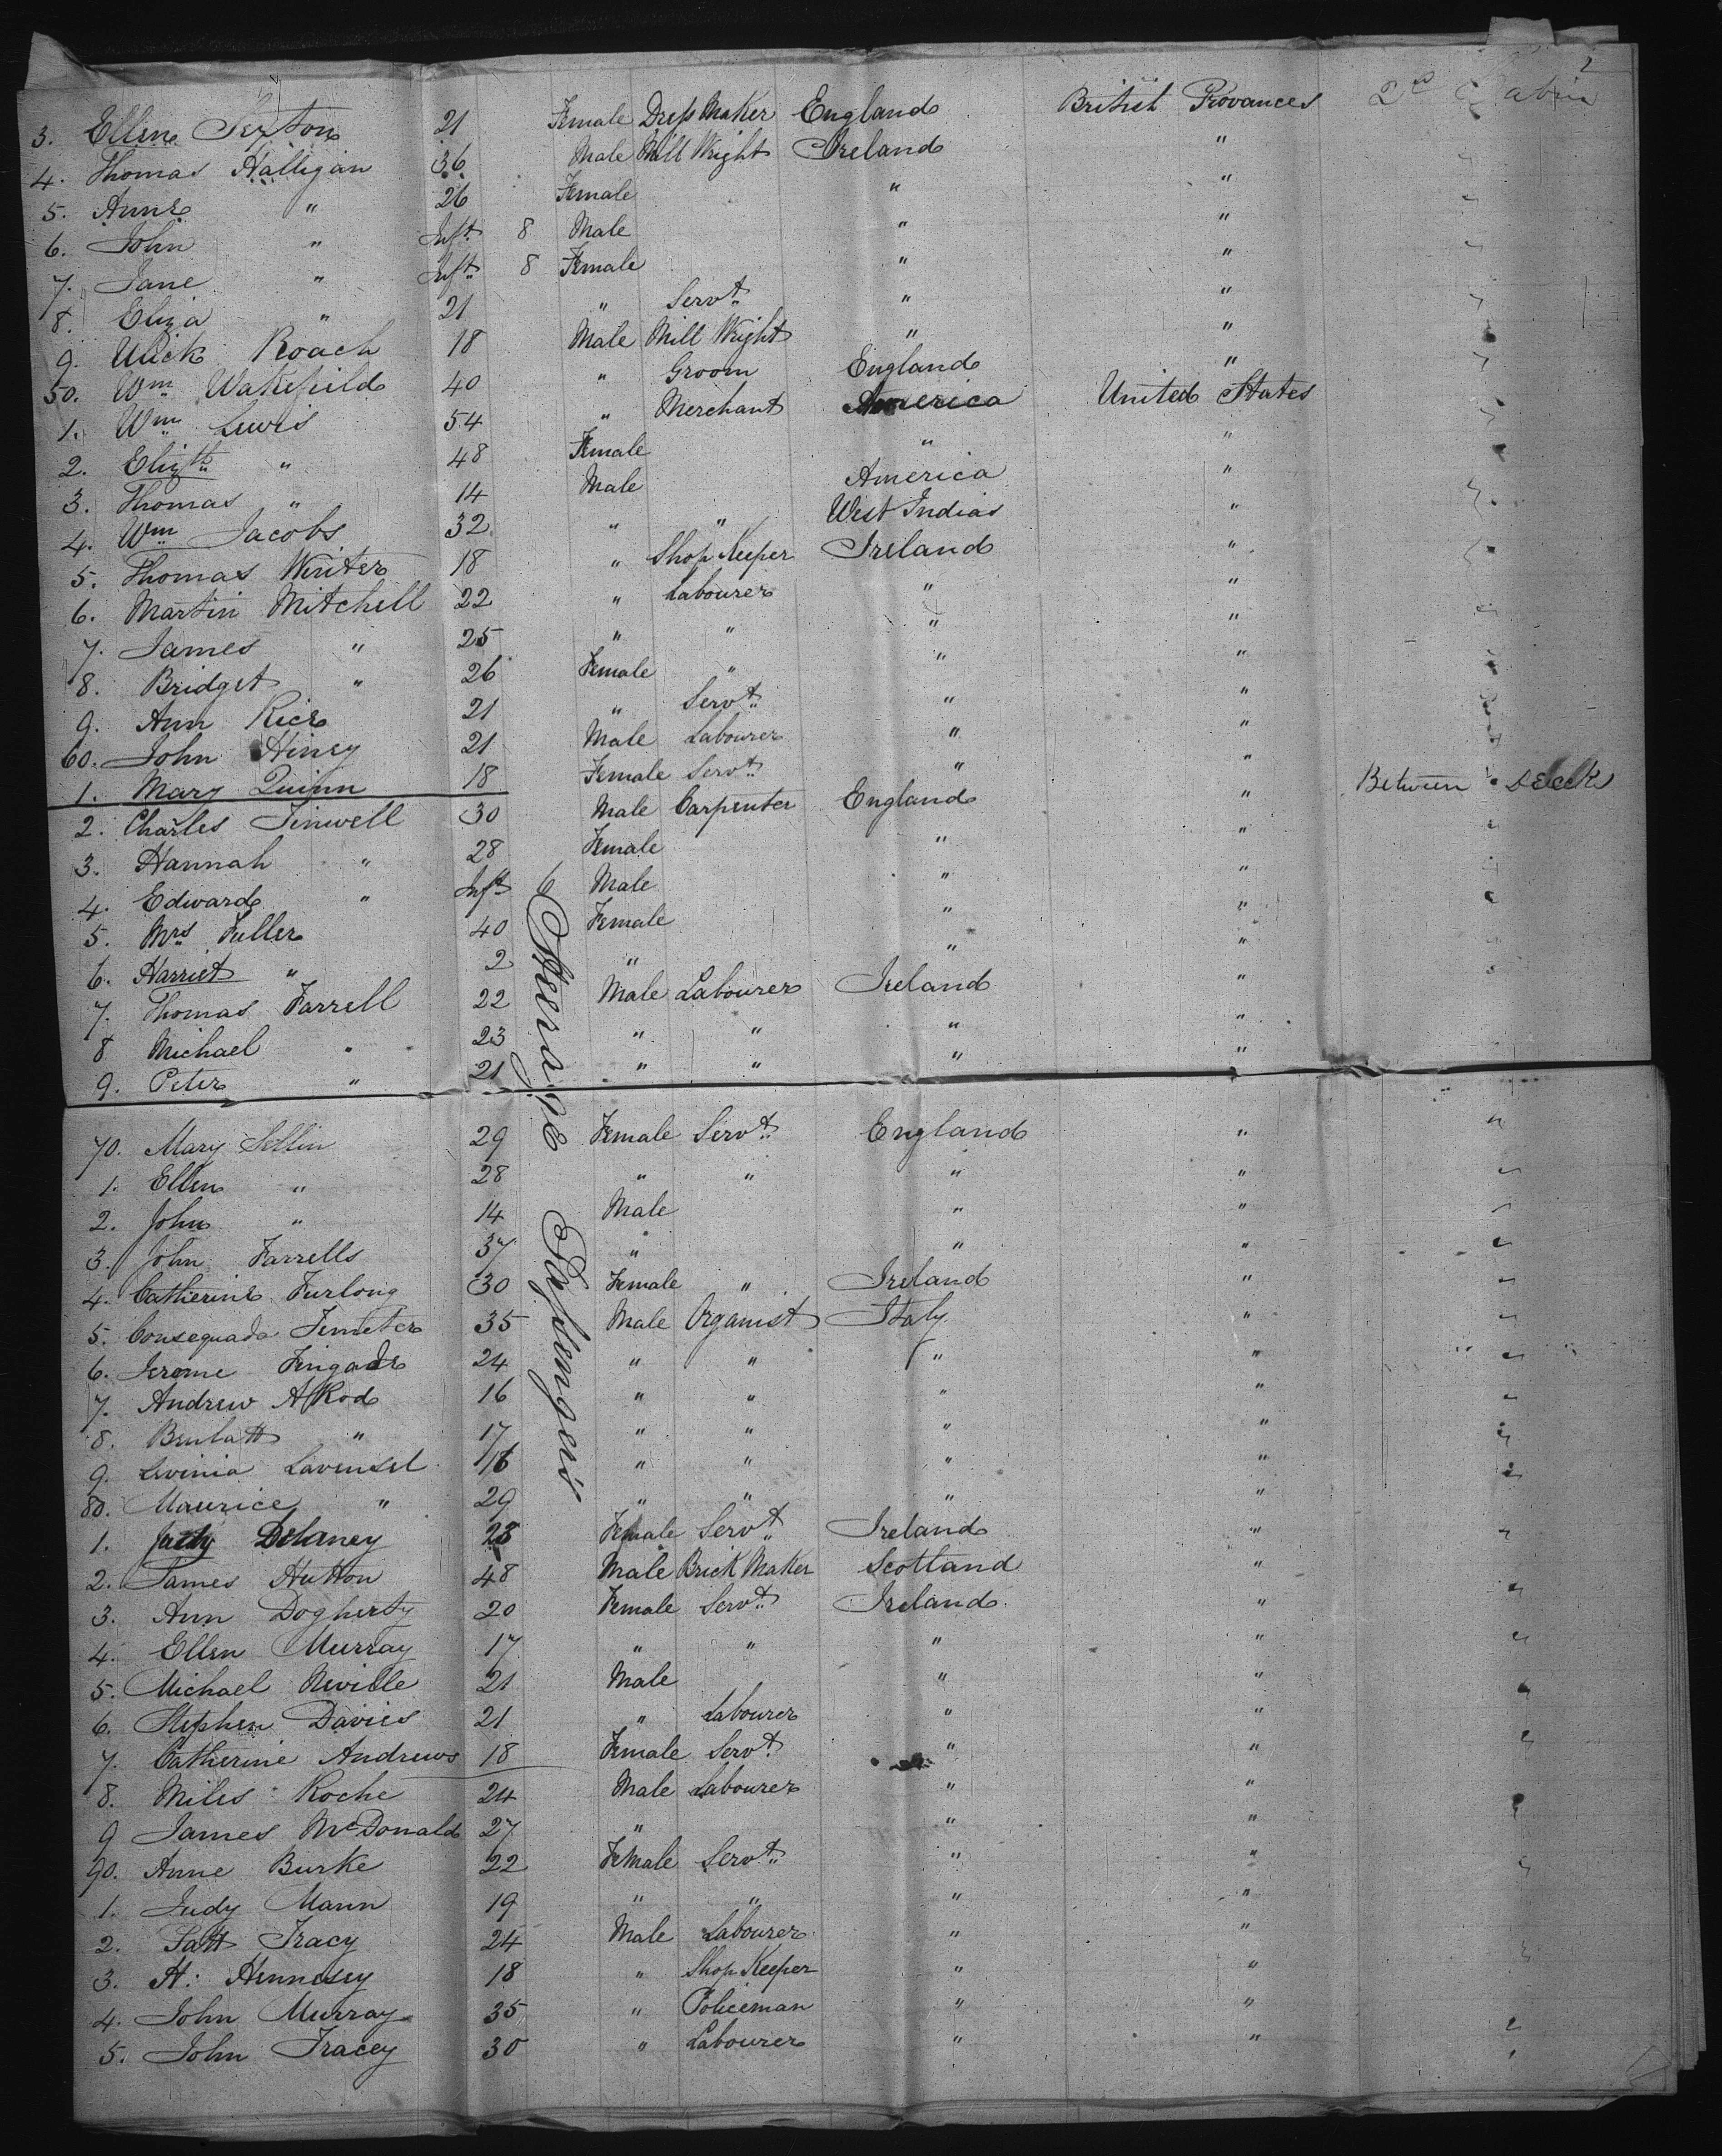 2
3. Ellen Sexton 21 Female Dress Maker England British Provances 2d Cabin
4. Thomas Halligan 36 Male Mill Wright Ireland "
5. Anne " 26 Female " "
6. John " Inft 8 Male " "
7. Jane " Inft 8 Female " "
8. Eliza " 21 " Servt " "
9. Ulick Roach 18 Male Mill Wright " "
50. Wm Wakefield 40 " Groom England "
1. Wm Lewis 54 " Merchant America United States
2. Elizth " 48 Female " "
3. Thomas " 14 Male America "
4. Wm Jacobs 32 " " West Indias "
5. Thomas Winter 18 " Shop Keeper Ireland "
6. Martin Mitchell 22 " Labourer " "
7. James " 25 " " " "
8. Bridget " 26 Female " " "
9. Ann Rice 21 " Servt " "
60. John Hiney 21 Male Labourer " "
1. Mary Quinn 18 Female Servt " "
2. Charles Finwell 30 Male Carpenter England " Between Deck
3. Hannah " 28 Female " "
4. Edward " Inft 6 Male " "
5. Mrs Fuller 40 Female " "
6. Harriet " 2 " " "
7. Thomas Farrell 22 Male Labourer Ireland "
8 Michael " 23 " " " "
9. Peter " 21 " " " "
Steerage Passengers
70. Mary Sellin 29 Female Servt England " "
1. Ellen " 28 " " " " "
2. John " 14 Male " " "
3. John Farrells 37 " " " "
4. Catherine Furlong 30 Female " Ireland " "
5. Consequada Jemeter 35 Male Organist Italy " "
6. Jerome Fingade 24 " " " " "
7. Andrew A Rod 16 " " " " "
8. Benbatt " 17 " " " " "
9. Levinia Lavensel 16 " " " " "
80. Maurice " 29 " " " "
1. Judy Delaney 28 Female Servt Ireland " "
2. James Hutton 48 Male Brick Maker Scotland "
3. Ann Dogherty 20 Female Servt Ireland " "
4. Ellen Murray 17 " " " " "
5. Michael Neville 21 Male " " "
6. Stephen Davies 21 " Labourer " "
7. Catherine Andrews 18 Female Servt " " "
8. Miles Roche 24 Male Labourer " "
9 James McDonald 27 " " "
90. Anne Burke 22 Female Servt " " "
1. Judy Mann 19 " " " "
2. Patt Tracy 24 Male Labourer " "
3. H: Hennesey 18 " Shop Keeper " "
4. John Murray 35 " Policeman " " "
5. John Tracey 30 " Labourer " " "